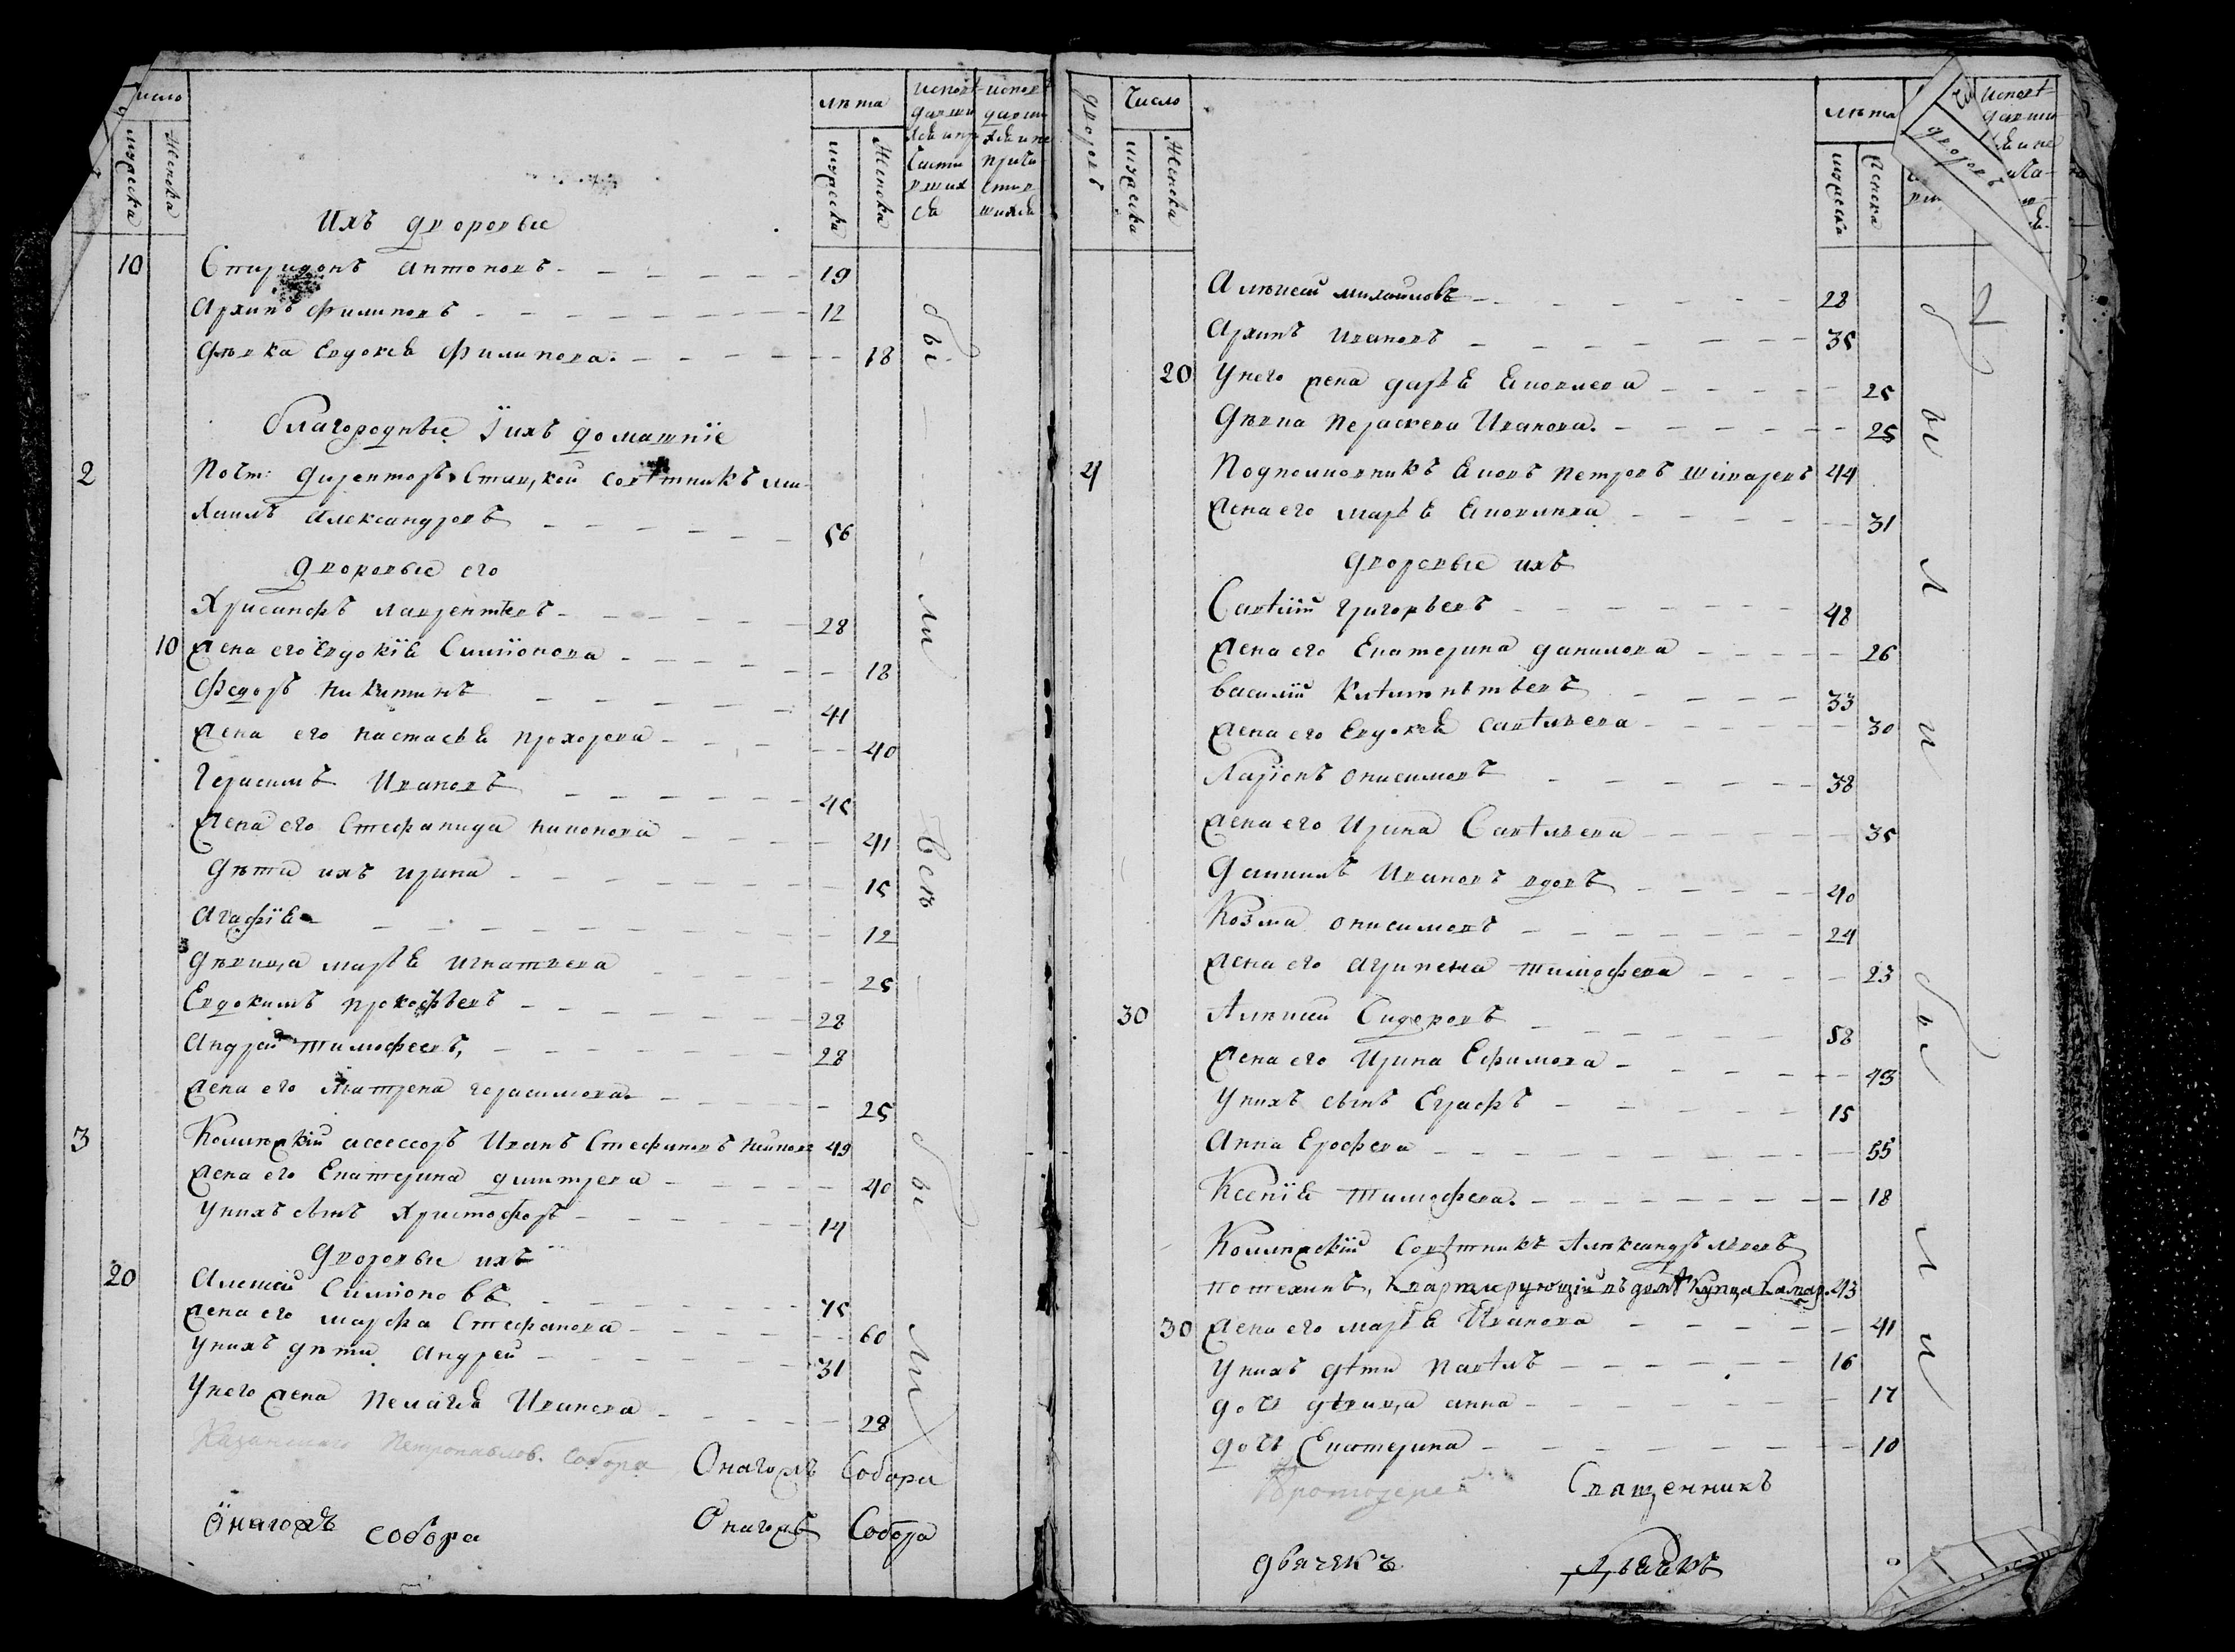 число
мужеска
Женска
лѣта
мужеска
Женска
Ихъ дворовые
10 Спиридонъ Антоновъ 19
Архипъ Филиповъ 12
дѣвка Евдокея Филипова 18
благородные и ихъ домашнїе
2 Почт: директоръ Статской совѣтникъ ми-
хаилъ Александровъ 56
дворовые его
Хрисанфъ лаврентьевъ 28
10 жена его Евдокїя Симїонова 18
Федоръ Никитинъ 41
жена его настасья прохорова 40
Герасимъ Ивановъ 45
жена его Стефанида никонова 41
дѣти ихъ ирина 15
Агафїя 12
дѣвица марья игнатьева 25
Евдокимъ прокофьевъ 28
Андрей тимофеевъ 28
жена его матрена герасимова 25
3 Коллежскїй асессоръ Иванъ Стефановъ 49
жена его Екатерина димитрева 40
у нихъ сынъ Христофоръ 14
дворовые ихъ
20 Алексей Симїоновъ 75
жена его марфа Стефанова 60
у нихъ дѣти Андрей 31
у него жена Пелагея Иванова 28
Казанскаго Петропавлов. собора Онагожъ Собора
Онагожъ собора Онагожъ Собора
бы ли Всѣ бы ли
дворовъ
Число
мужеска
Женска
лѣта
мужеска
Женска
дворовъ
Алексей михаиловъ 28
Архипъ Ивановъ 35
20 у него жена дарья 25
дѣвка Пераскева Иванова 25
4 Подполковникъ Петровъ 44
жена его марья 31
дворовые ихъ
Савелїй Григорьевъ 48
жена его Екатерина данилова 26
василїй 33
жена его Евдокея савельева 30
Ларїонъ онисимовъ 38
жена его Ирина Савельева 35
Данилъ Ивановъ вдовъ 40
Козма онисимовъ 24
жена его агрипена тимофева 23
30 Алексей Сидоровъ 58
жена его Ирина Ефимова 43
у нихъ сынъ Еграфъ 15
Анна Ерофева 55
Ксенїя тимофева 18
Коллежскїй совѣтникъ Александръ львовъ
потехинъ, квартирующїй въ домѣ купца 43
30 жена его марья Иванова 41
у нихъ дѣти павелъ 16
дочь дѣвица анна 17
дочь Екатерина 10
Протоерей Священникъ
дьячекъ
бы ли бы ли